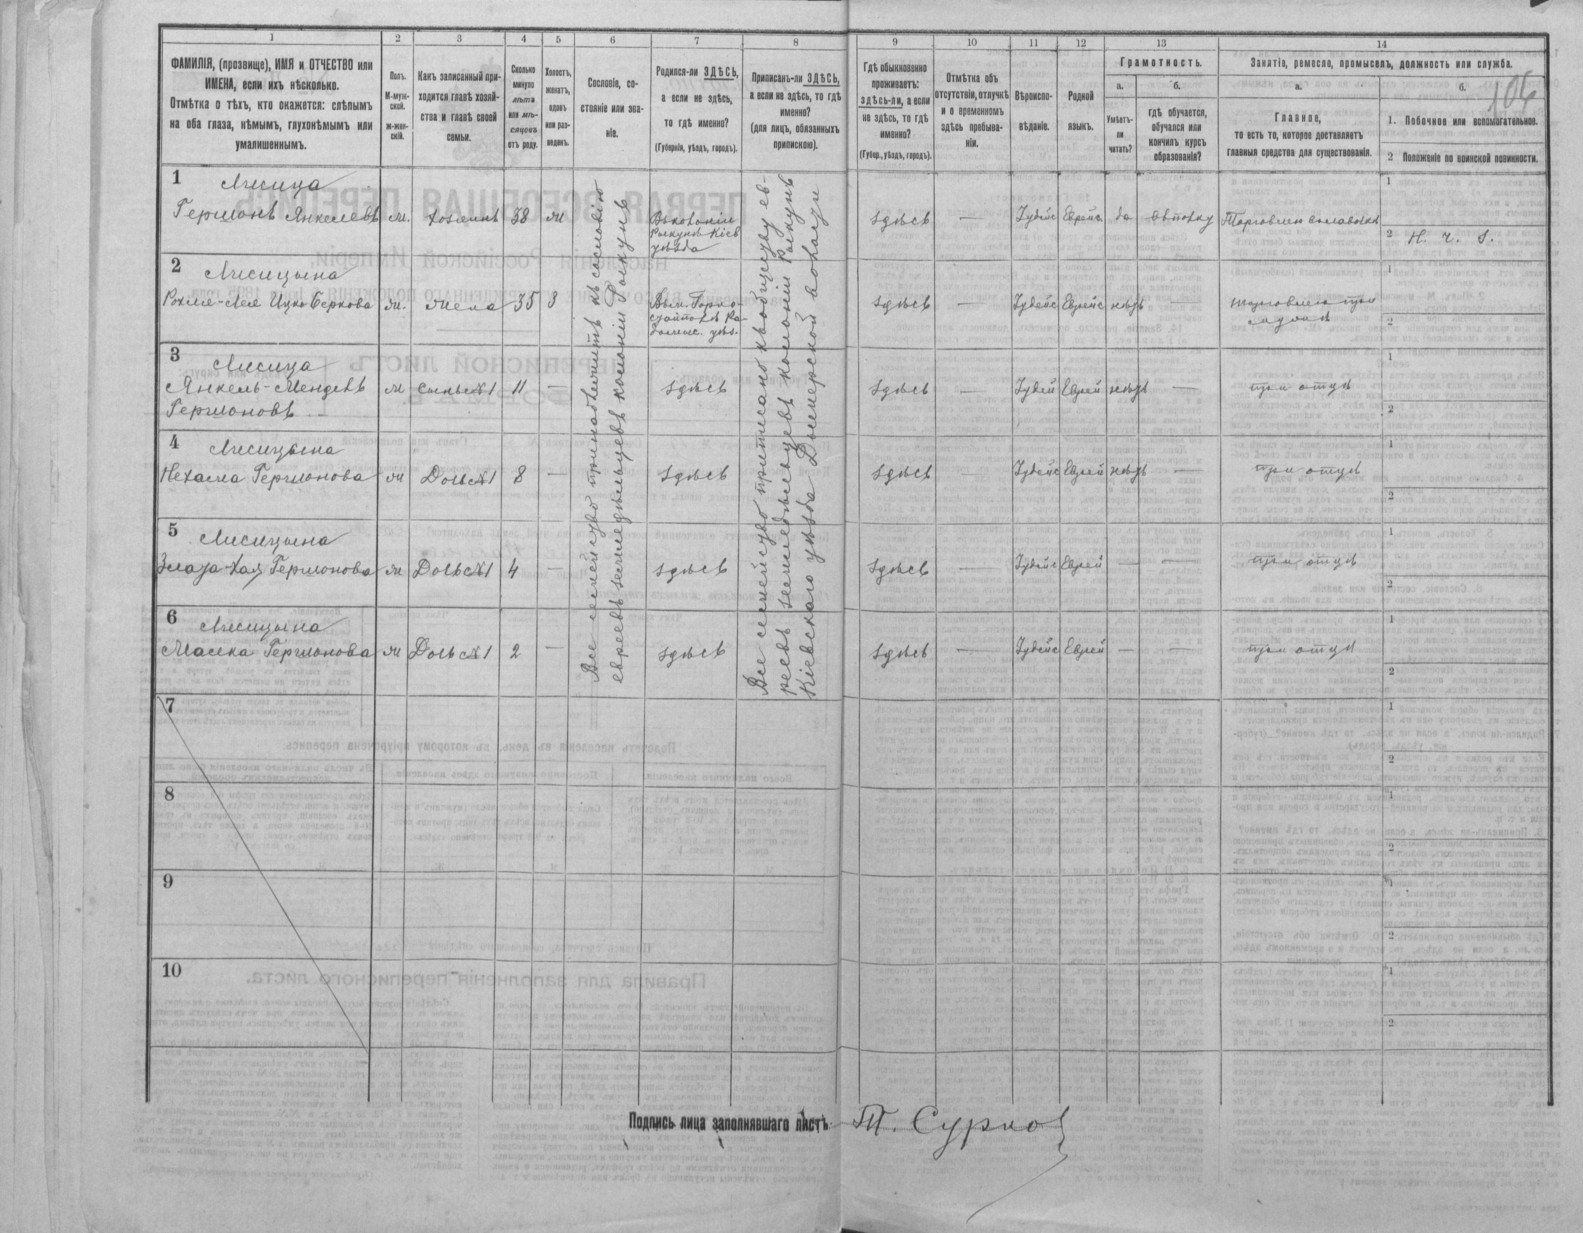 1
2
3
4
5
6
7
8
9
10
11
12
13
14
ФАМИЛІЯ, (прозвище), ИМЯ и ОТЧЕСТВО или
ИМЕНА, если ихъ нѣсколько.
Отмѣтка о тѣхъ, кто окажется: слѣпымъ
на оба глаза, нѣмымъ, глухонѣмымъ или
умалишеннымъ.
Полъ.
М-муж-
ской.
Ж-жен-
скій.
Какъ записанный при-
ходится главѣ хозяй-
ства и главѣ своей
семьи.
Сколько
минуло
лѣтъ
или мѣ-
сяцевъ
отъ роду.
Холостъ,
женатъ,
вдовъ
или раз-
веденъ.
Сословіе, со-
стояніе или зва-
ніе.
Родился-ли ЗДѢСЬ,
а если не здѣсь,
то гдѣ именно?
(Губернія, уѣздъ, городъ).
Приписанъ-ли ЗДѢСЬ,
а если не здѣсь, то гдѣ
именно?
(для лицъ, обязанныхъ
припискою).
Гдѣ обыкновенно
проживаетъ:
здѣсь-ли, а если
не здѣсь, то гдѣ
именно?
(Губер., уѣздъ, городъ).
Отмѣтка объ
отсутствіи, отлучкѣ
и о временномъ
здѣсь пребыва-
ніи.
Вѣроиспо-
вѣданіе.
Родной
языкъ.
Грамотность.
а.
Умѣетъ-
ли
читать?
б.
гдѣ обучается,
обучался или
кончилъ курсъ
образованія?
Занятія, ремесло, промыселъ, должность или служба.
а.
Главное,
то есть то, которое доставляетъ
главныя средства для существованія.
б.
1. Побочное или вспомогательное.
2 Положеніе по воинской повинности.
1
Лисица
Гершонъ Янкелевъ м. хозяинъ 38 ж
Въ колоніи
Рыкунъ Кіев
уѣзда
здѣсь — Іудейс Еврейс да
Торговля
1
2 Н. ч. З.
2
Лисицына
Рохля-Лея Ицко Беркова ж. жена 35 з
здѣсь — Іудейс Еврейс нѣтъ
торговля при
1
2
3
Лисица
Янкель-Мендель м сынъ №1 11 — здѣсь здѣсь — Іудей Еврей нѣтъ — при отцѣ
Гершоновъ
1
2
4
Лисицына
Нехама Гершонова ж Дочь №1 8 — здѣсь здѣсь — Іудейс Еврей нѣтъ — при отцѣ
1
2
5
Лисицына
Злата-Хая Гершонова ж Дочь №1 4 — здѣсь здѣсь — Іудейс Еврей — — при отцѣ
1
2
6
Лисицына
Масека Гершонова ж Дочь №1 2 — здѣсь здѣсь — Іудейс Еврей — — при отцѣ
1
2
Все семейство принадлежитъ къ сословію
евреевъ земледѣльцевъ колоніи Рыкунъ
Все семейство приписано къ обществу ев-
реевъ земледѣльцевъ колоніи Рыкунъ
Кіевскаго уѣзда Дымерской волости
7
1
2
8
1
2
9
1
2
10
1
2
Подпись лица заполнявшаго листъ